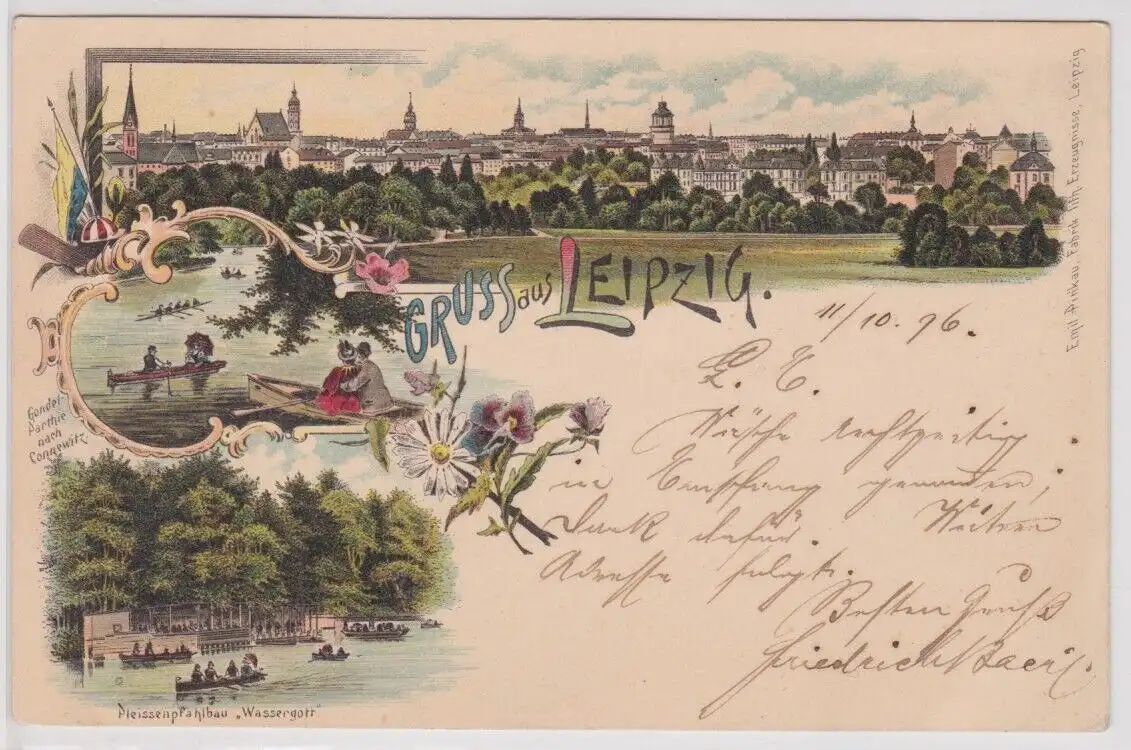 GRUSS aus LEIPZIG.
Emil Pinkau, Fabrik lith. Erzeugnisse, Leipzig
Gondel-
Parthie
nach
Connewitz.
Pleissenpfahlbau „Wassergott"
11/10. 96.
L. E.
Wäsche rechtzeitig
in Empfang genommen;
Dank dafür. Weitere
Adresse folgt.
Besten Gruß
Friedrich Baer